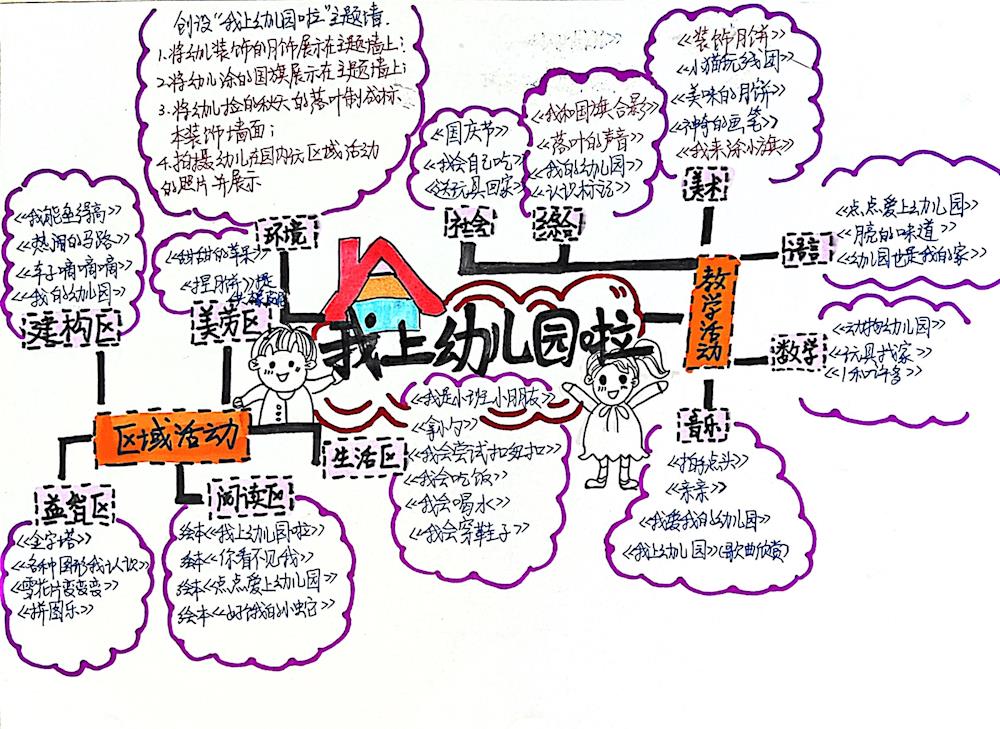 创设“我上幼儿园啦”主题墙.
1.将幼儿装饰的月饼展示在主题墙上;
2.将幼儿涂的国旗展示在主题墙上;
3.将幼儿捡的秋天的落叶制成标
本装饰墙面;
4.拍摄幼儿在园内玩区域活动
的照片并展示
环境
《国庆节》
《我会自己吃》
《送玩具回家》
社会
《我和国旗合影》
《落叶的声音》
《我的幼儿园》
《认识标记》
综合
《装饰月饼》
《小猫玩线团》
《美味的月饼》
《神奇的画笔》
《我来涂小旗》
美术
《点点爱上幼儿园》
《月亮的味道》
《幼儿园也是我的家》
语言
《动物幼儿园》
《玩具找家》
《1和许多》
数学
教学活动
音乐
《拍手点头》
《亲亲》
《我爱我的幼儿园》
《我上幼儿园》(歌曲欣赏)
我上幼儿园啦
《我能垒得高》
《热闹的马路》
《车子嘀嘀嘀》
《我的幼儿园》
建构区
《甜甜的苹果》
《捏月饼》
美劳区
区域活动
生活区
《我是小班小朋友》
《拿小勺》
《我会尝试扣纽扣》
《我会吃饭》
《我会喝水》
《我会穿鞋子》
益智区
《金字塔》
《各种图形我认识》
《雪花片变变变》
《拼图乐》
阅读区
绘本《我上幼儿园啦》
绘本《你看不见我》
绘本《点点爱上幼儿园》
绘本《好饿的小蛇》